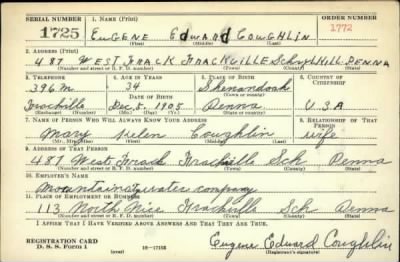 SERIAL NUMBER 1. NAME (Print) ORDER NUMBER
1725 EUGENE EDWARD COUGHLIN 1772
(First) (Middle) (Last)
2. ADDRESS (Print)
487 WEST FRACK FRACKVILLE SCHUYLKILL PENNA
(Number and street or R. F. D. number) (Town) (County) (State)
3. TELEPHONE 4. AGE IN YEARS 5. PLACE OF BIRTH 6. COUNTRY OF CITIZENSHIP
396 M 34 Shenandoah
DATE OF BIRTH (Town or county)
Frackville Dec. 8. 1905 Penna U S A
(Exchange) (Number) (Mo.) (Day) (Yr.) (State or country)
7. NAME OF PERSON WHO WILL ALWAYS KNOW YOUR ADDRESS 8. RELATIONSHIP OF THAT PERSON
Mary Helen Coughlin wife
(Mr., Mrs., Miss) (First) (Middle) (Last)
9. ADDRESS OF THAT PERSON
487 West Frack Frackville Sch Penna
(Number and street or R. F. D. number) (Town) (County) (State)
10. EMPLOYER'S NAME
Mountain water company
11. PLACE OF EMPLOYMENT OR BUSINESS
113 North Nice Frackville Sch Penna
(Number and street or R. F. D. number) (Town) (County) (State)
I AFFIRM THAT I HAVE VERIFIED ABOVE ANSWERS AND THAT THEY ARE TRUE.
REGISTRATION CARD
D. S. S. Form 1 (over) 16—17105 Eugene Edward Coughlin
(Registrant's signature)